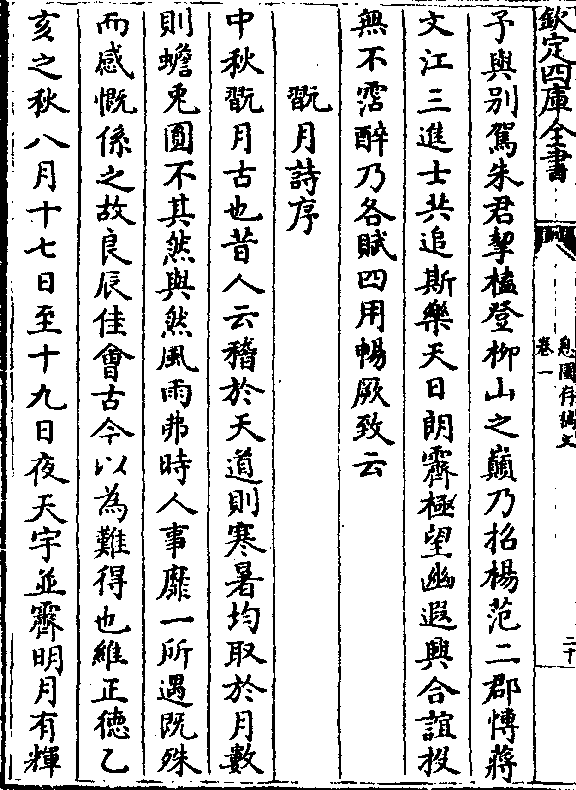 欽定四庫全書
息園存稿文
卷一
二十
予與别駕朱君挈榼登柳山之巔乃招楊范二郡愽蔣
文江三進士共追斯樂天日朗霽極望幽遐興合誼投
無不霑醉乃各賦四用暢厥致云
翫月詩序
中秋翫月古也昔人云稽於天道則寒暑均取於月數
則蟾兎圓不其然與然風雨弗時人事靡一所遇既殊
而感慨係之故良辰佳會古今以為難得也維正徳乙
亥之秋八月十七日至十九日夜天宇並霽明月有輝